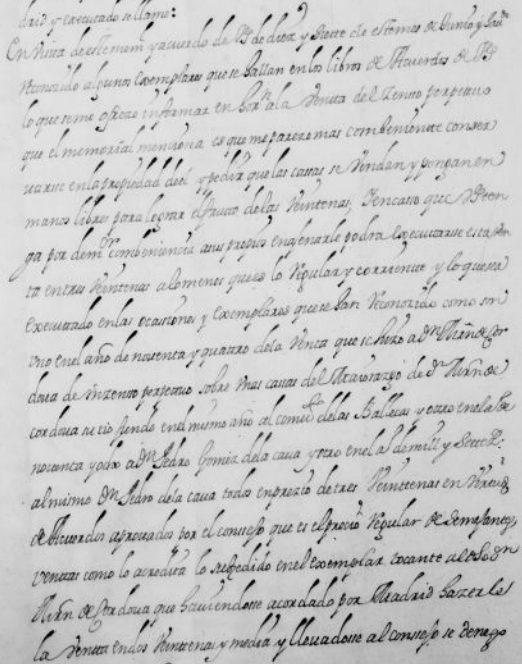 drid y executado se llame:
En Vista de este mem.l y acuerdo de V.S. de diez y Siette de este mes de Junio y hau.do
reconozido algunos exemplares que se hallan en los libros de Acuerdos de V.S.
lo que se me ofreze informar en horn. a la Venta del Zenso perpetuo
que el memorial menciona es que me pareze mas combeniente conser
uarse en la propiedad del y pedir que las cassas se Vendan y pongan en
manos libres para lograr el fructo de las Veintenas, Y en caso que V.S. ten
ga por de m.or combeniencia a sus propios enagenarle podra executarse esta Ven
ta en tres Veintenas a lo menos que es lo Regular y corriente y lo que se a
executado en las ocasiones y exemplares que se han Reconozido como son
vno en el año de nouenta y quattro de la Venta que se hizo a Dn Mrn de Cor
doua de vn zenso perpetuo sobre Vnas cassas del Maiorazgo de Dn Mrn de
cordoua su tio siendo en el mismo año al comu.to de las Ballecas y otro en el a.o de
nouenta y ocho a Dn Pedro Gomez de la caua y otro en el a.o de mill y Sette z.s
al mismo Dn Pedro de la caua todos en prezio de tres Veinttenas en Virtud
de Acuerdos aprouados por el consejo que es el precio Regular de semejantes
ventas como lo acredita lo suzedido en el exemplar tocante al dho Dn
Mrn de Cordoua que hauiendose acordado por Madrid hazerle
la Venta en dos Veinttenas y media y lleuadose al consejo se denego